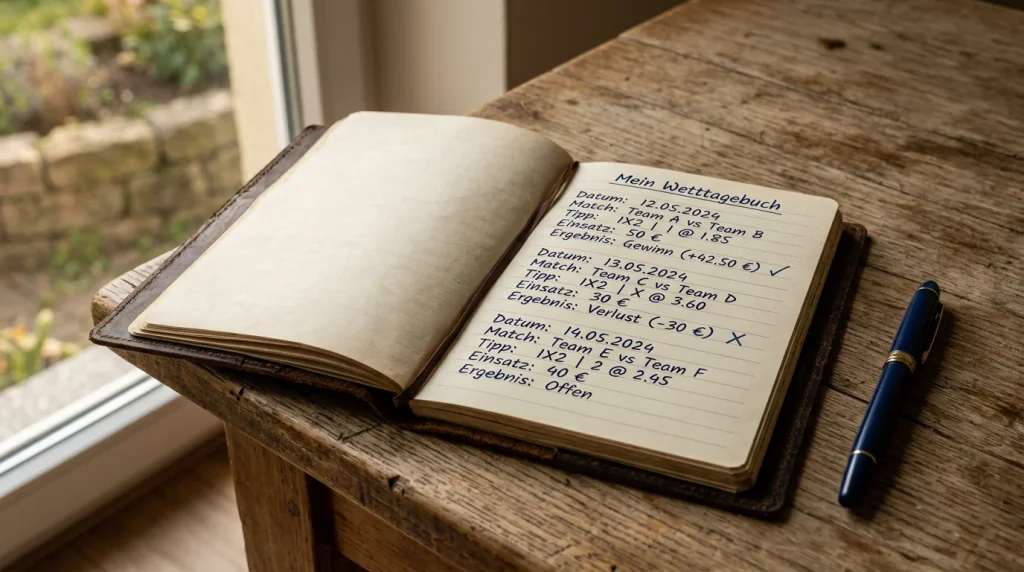 Mein Wetttagebuch
Datum: 12.05.2024
Match: Team A vs Team B
Tipp: 1X2 | 1 @ 1.85
Einsatz: 50 €
Ergebnis: Gewinn (+42.50 €) ✓
Datum: 13.05.2024
Match: Team C vs Team D
Tipp: 1X2 | X @ 3.60
Einsatz: 30 €
Ergebnis: Verlust (-30 €) X
Datum: 14.05.2024
Match: Team E vs Team F
Tipp: 1X2 | 2 @ 2.45
Einsatz: 40 €
Ergebnis: Offen